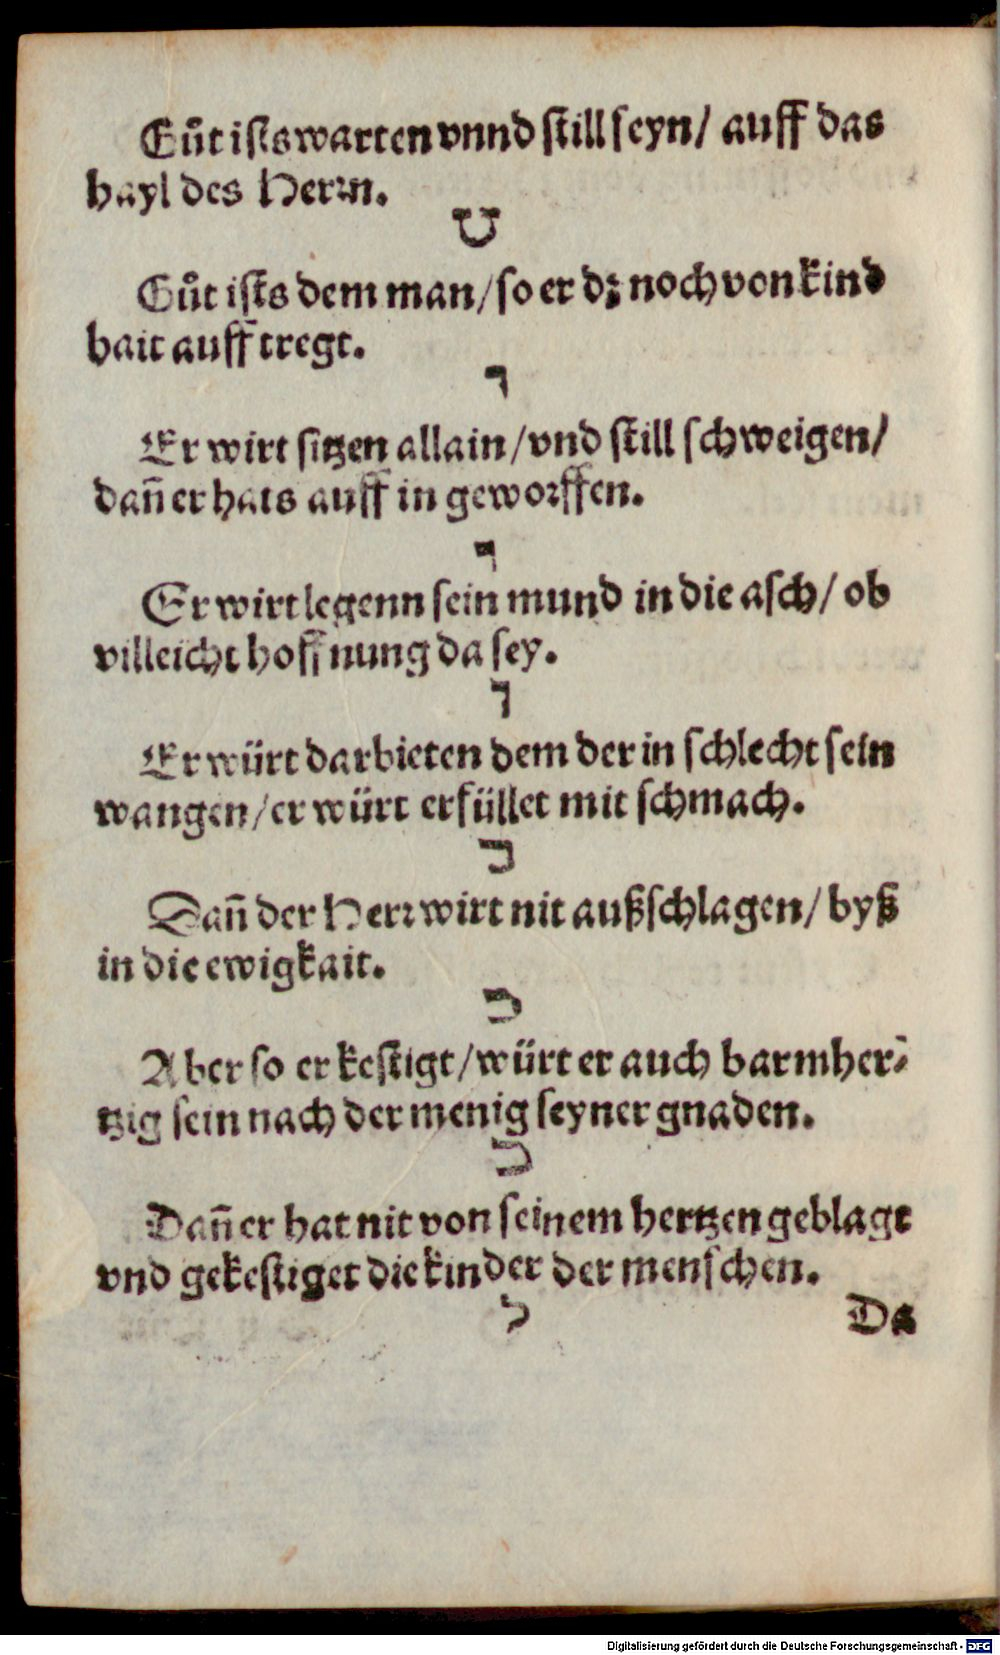 Gůt ists warten vnnd still seyn/ auff das
hayl des Herrn.
ט
Gůt ists dem man/ so er dz noch von kind
hait auff tregt.
י
Er wirt sitzen allain/ vnd still schweigen/
dañ er hats auff in geworffen.
י
Er wirt legenn sein mund in die asch/ ob
villeicht hoffnung da sey.
י
Er würt darbieten dem der in schlecht sein
wangen/ er würt erfüllet mit schmach.
כ
Dañ der Herr wirt nit außschlagen/ byß
in die ewigkait.
כ
Aber so er kestigt/ würt er auch barmher⸗
tzig sein nach der menig seyner gnaden.
כ
Dañ er hat nit von seinem hertzen geblagt
vnd gekestiget die kinder der menschen.
ל
Da
Digitalisierung gefördert durch die Deutsche Forschungsgemeinschaft - DFG